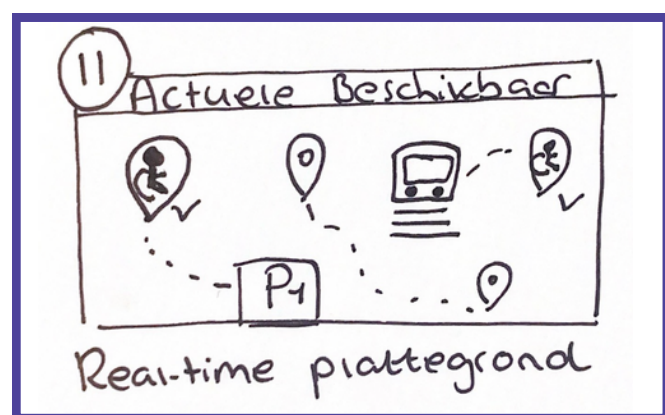 11
Actuele Beschikbaar
P1
Real-time plattegrond